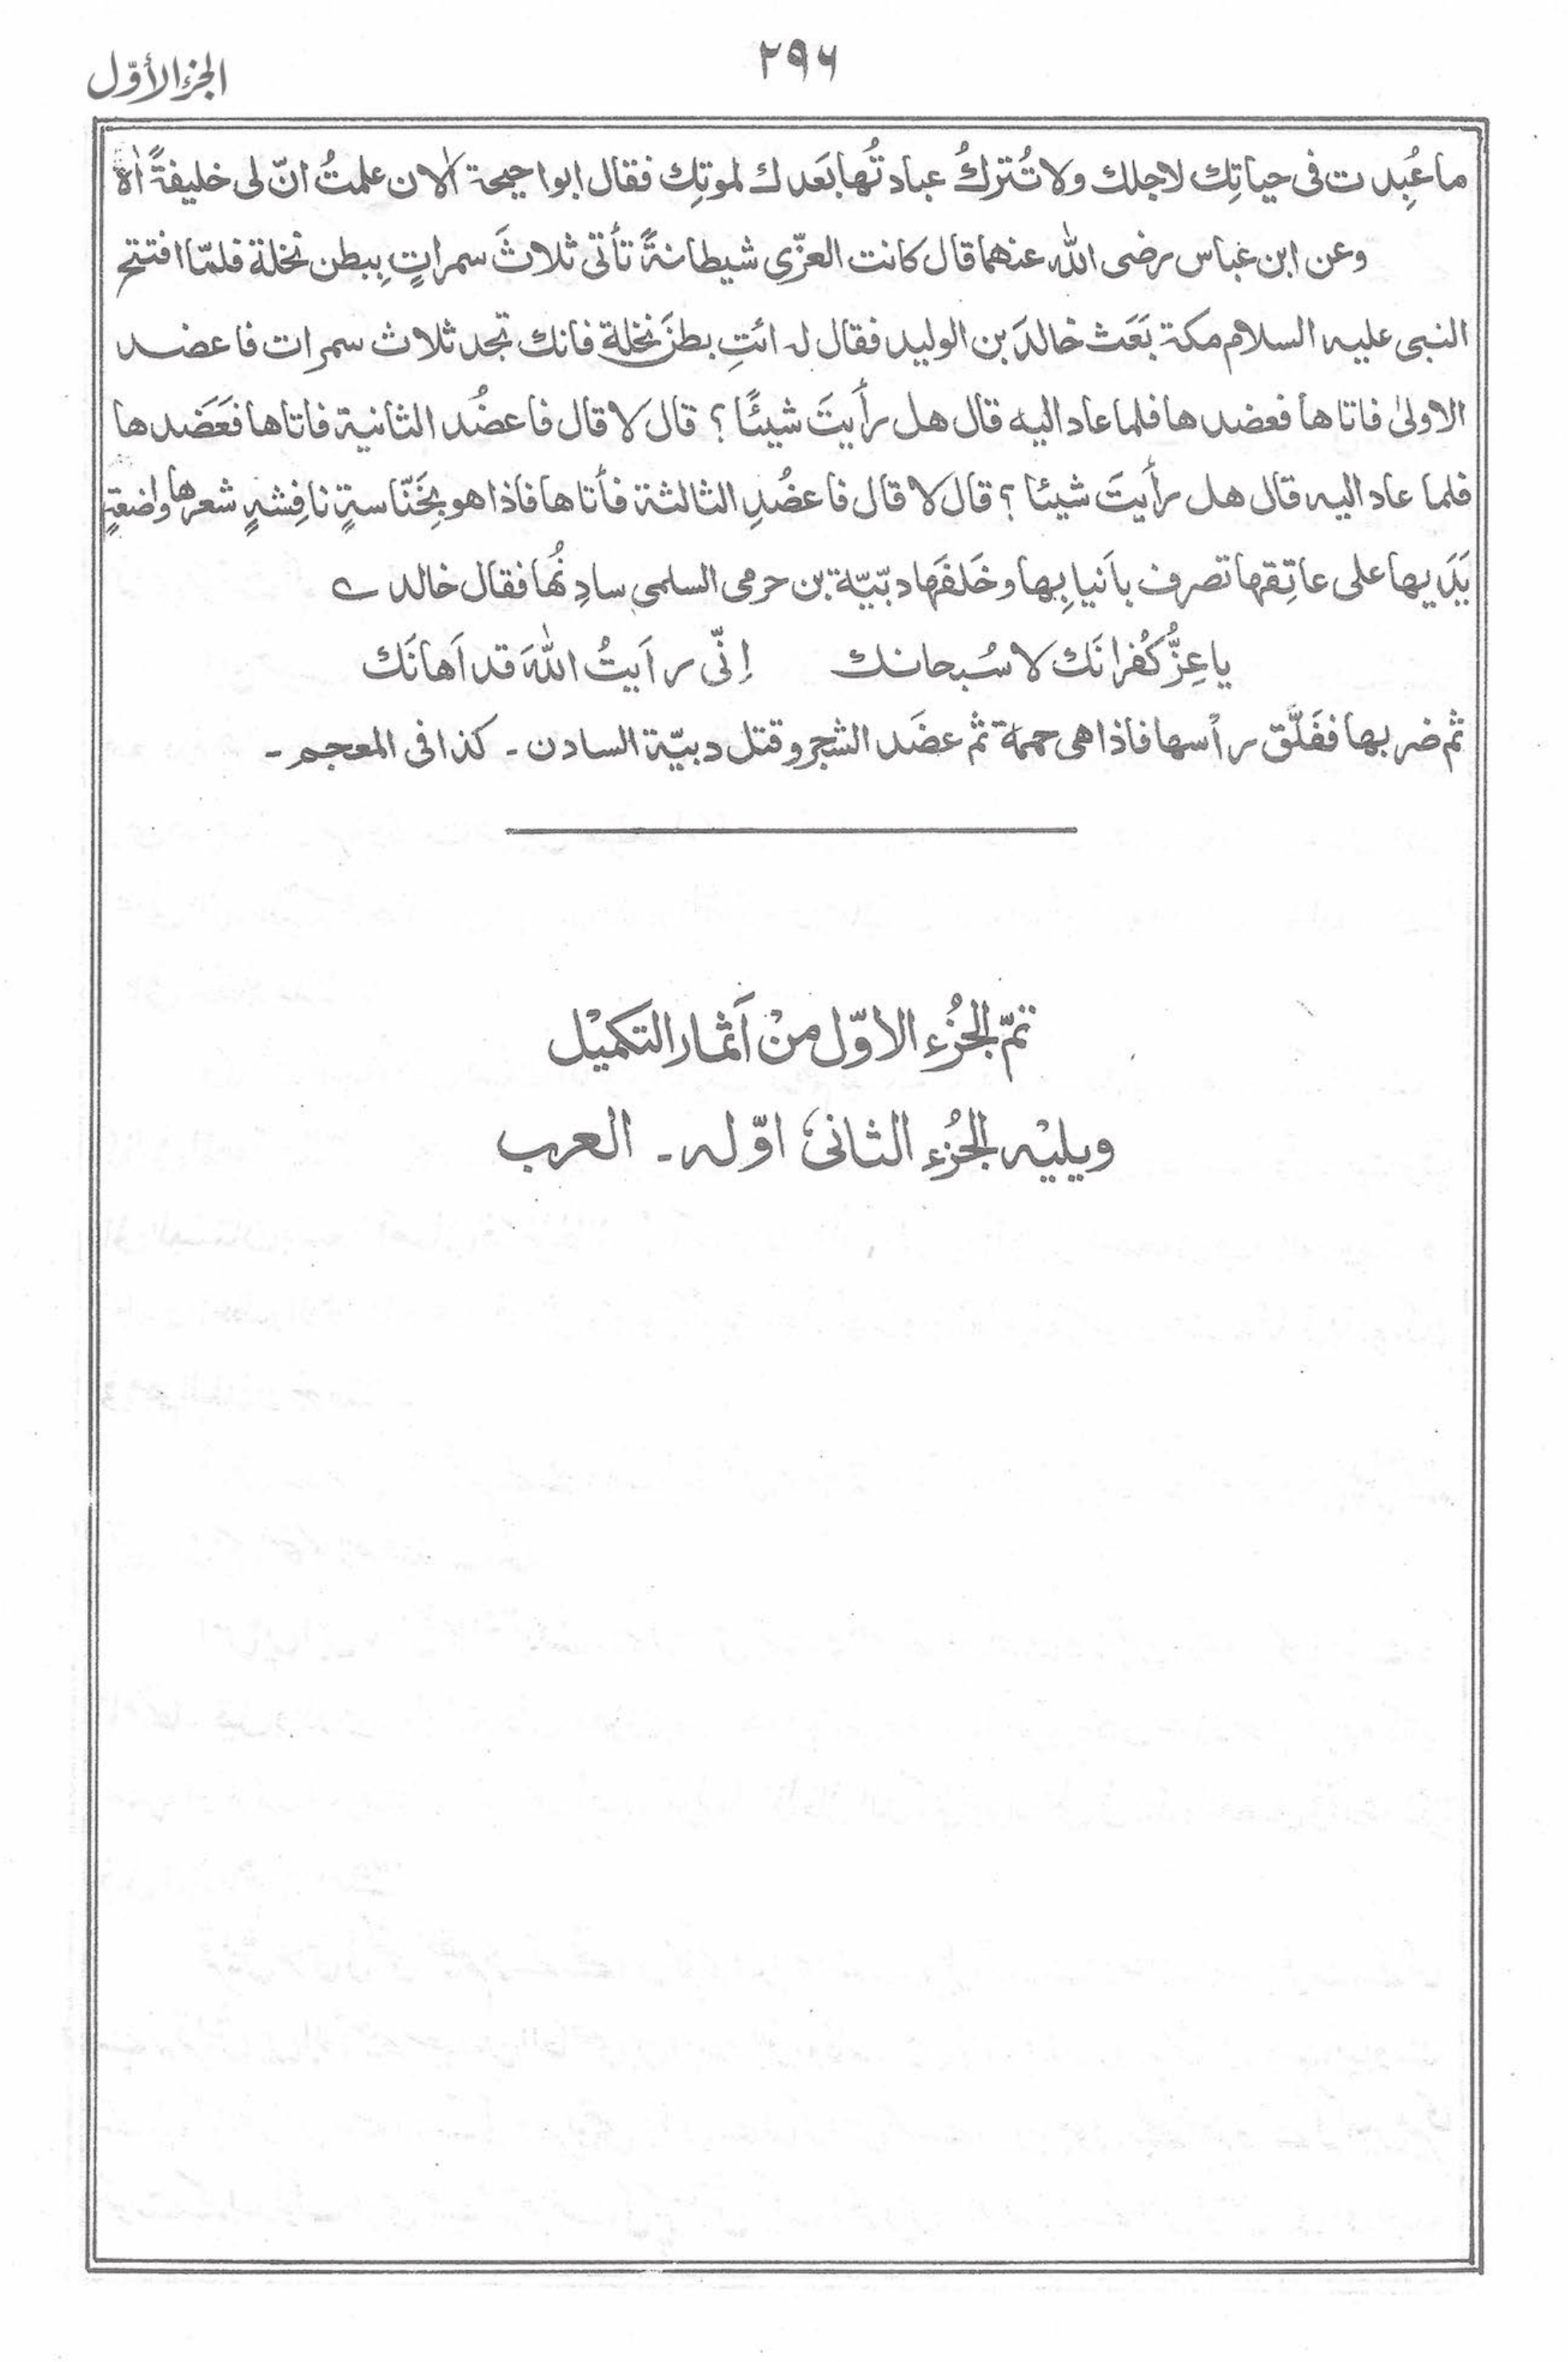 ٢٩٦
الجزء الأوّل
ما عُبِدت فى حياتِك لاجلك ولا تُتركُ عبادتُها بَعدك لموتِك فقال ابو احيحة اَلان علمتُ انّ لى خليفةً اھ
وعن ابن عباس رضى الله عنهما قال كانت العزّى شيطانةً تأتى ثلاثَ سمراتٍ بِبطن نخلة فلمّا افتتح
النبى عليه السلام مكة بَعَث خالدَ بن الوليد فقال له ائتِ بطنَ نخلة فانك تجد ثلاث سمرات فاعضد
الاولىٰ فاتاها فعضدها فلما عاد اليه قال هل رأيتَ شيئًا ؟ قال لا قال فاعضُد الثانية فاتاها فعَضَدها
فلما عاد اليه قال هل رأيتَ شيئا ؟ قال لا قال فاعضُدِ الثالثة فأتاها فاذا هو بِخَنّاسةٍ نافِشهٍ شعرها واضعةٍ
يَدَيها على عاتِقها تصرف بأنيابِها وخَلفَها دبّيّة بن حرمى السلمى سادِنُها فقال خالد ؎
يا عِزُّ كُفرانَك لا سُبحانك اِنّى رأيتُ اللهَ قد اَهانَك
ثم ضربها ففَلَّق رأسها فاذا هى حممة ثم عضَد الشجر وقتل دبيّة السادن ـ كذا فى المعجم ـ
تمّ الجزُء الاوّل منْ اَثمار التكميْل
ويليْه الجزُء الثانى، اوّله ـ العرب